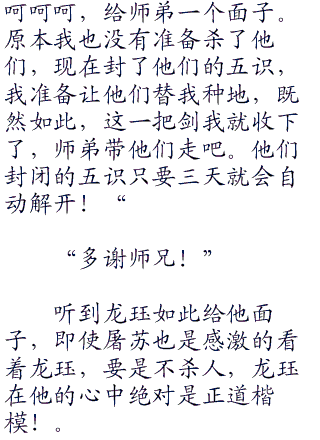 呵呵呵，给师弟一个面子。
原本我也没有准备杀了他
们，现在封了他们的五识，
我准备让他们替我种地，既
然如此，这一把剑我就收下
了，师弟带他们走吧。他们
封闭的五识只要三天就会自
动解开！“
“多谢师兄！”
听到龙珏如此给他面
子，即使屠苏也是感激的看
着龙珏，要是不杀人，龙珏
在他的心中绝对是正道楷
模！。